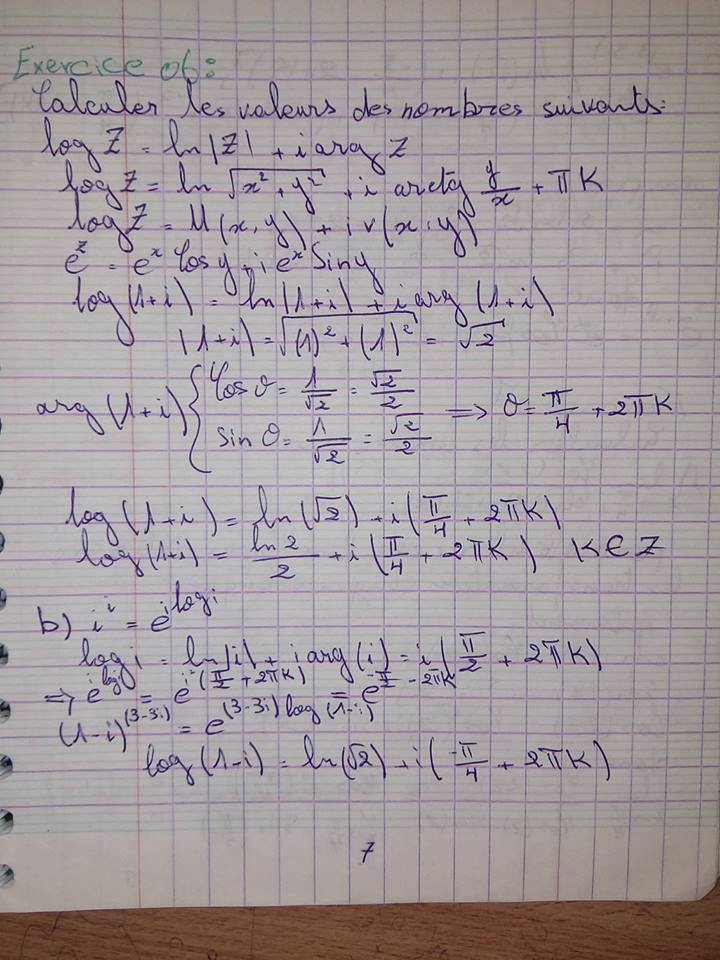 Exercice 06:
Calculer les valeurs des nombres suivants:
log Z = ln|Z| + i arg Z
log Z = ln √(x² + y²) + i arctg y/x + πK
log Z = U(x,y) + i v(x,y)
e^z = e^x Cos y + i e^x Sin y
log(1+i) = ln|1+i| + i arg(1+i)
|1+i| = √((1)² + (1)²) = √2
arg(1+i) { Cos θ = 1/√2 = √2/2
Sin θ = 1/√2 = √2/2 ⟹ θ = π/4 + 2πK
log(1+i) = ln(√2) + i(π/4 + 2πK)
log(1+i) = ln 2/2 + i(π/4 + 2πK) K ∈ Z
b) i^i = e^(i log i)
log i = ln|i| + i arg(i) = i(π/2 + 2πK)
⟹ e^(i log i) = e^(i²(π/2 + 2πK)) = e^(-π/2 - 2πK)
(1-i)^(3-3i) = e^((3-3i) log(1-i))
log(1-i) = ln(√2) + i(-π/4 + 2πK)
7